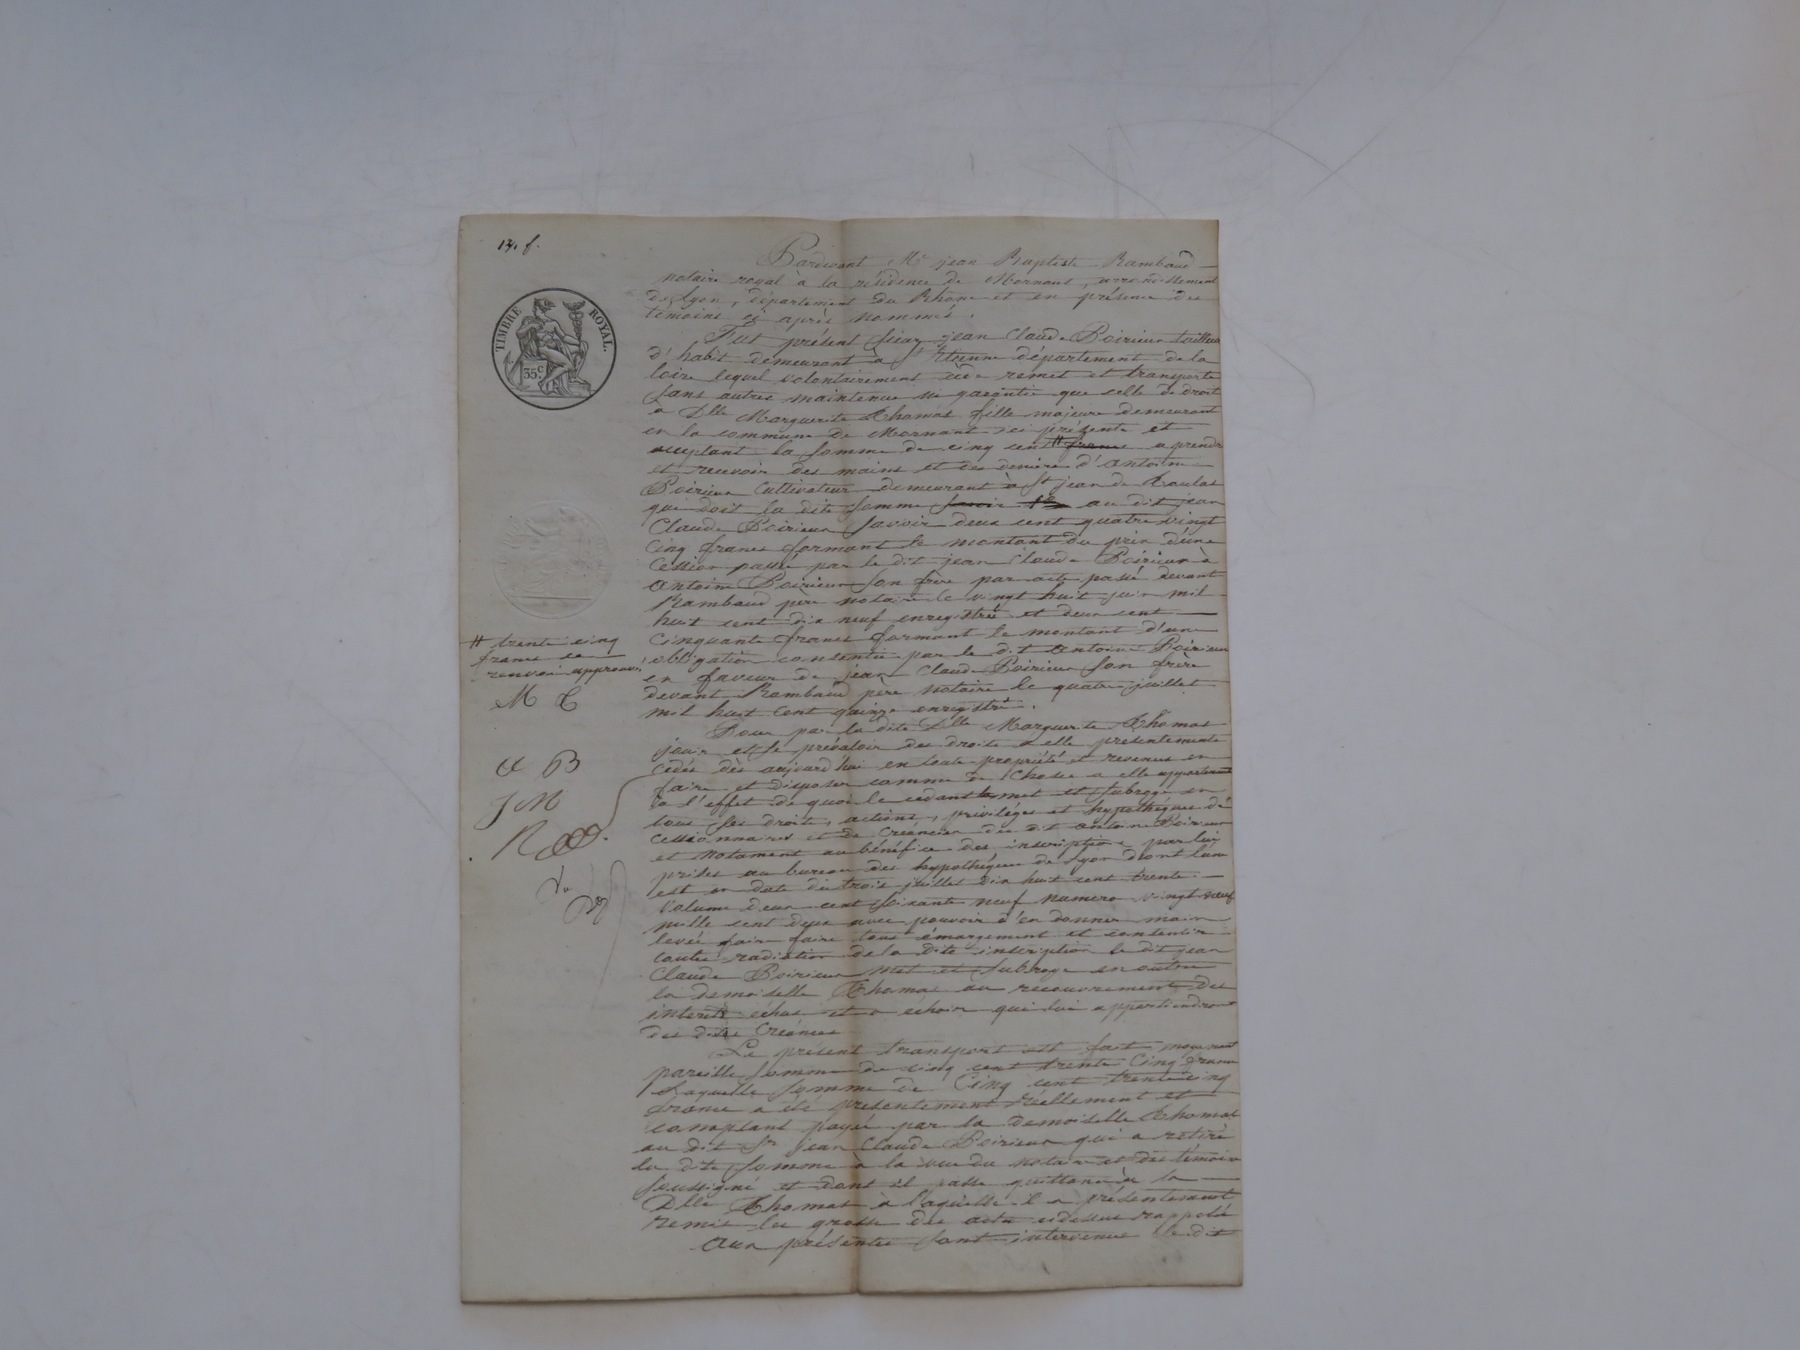 13. f.
TIMBRE ROYAL.
35 c.
Pardevant Me jean Baptiste Rambaud
notaire royal à la résidence de Mornant, arrondissement
de Lyon, département du Rhône et en présence des
témoins ci après nommés.
Fut présent sieur jean Claude Poirieux tailleur
d'habit demeurant à St Etienne département de la
loire lequel volontairement cède remet et transporte
sans autres maintenue ne garantie que celle de droit
a Dlle Marguerite Thomas fille majeure demeurant
en la commune de Mornant ici présente et
acceptant la somme de cinq cent # francs a prendre
et recevoir des mains et des deniers d'antoine
Poirieux Cultivateur demeurant à St jean de Toulas
qui doit la dite somme savoir au dit jean
Claude Poirieux savoir deux cent quatre vingt
cinq francs formant le montant du prix d'une
Cession passée par le dit jean Claude Poirieux à
antoine Poirieux son frère par acte passé devant
Rambaud père notaire le vingt huit juin mil
huit cent dix neuf enregistré et deux cent
cinquante francs formant le montant d'une
obligation consentie par le dit antoine Poirieux
en faveur de jean Claude Poirieux son frère
devant Rambaud père notaire le quatre juillet
mil huit cent quinze enregistré.
# trente cinq
francs ce
renvoi approuvé
M T
A B
J M
R
Pour par la dite Dlle Marguerite Thomas
jouir et se prévaloir des droits a elle présentement
cédés dès aujourd'hui en toute propriété et revenus en
faire et disposer comme de chose a elle appartenant
à l'effet de quoi le cédant la met et subroge en
tous ses droits, actions, privilèges et hypothèques de
cessionnaires et de créancier du dit antoine Poirieux
et notament au bénéfice des inscriptions par lui
prises au bureau des hypothèques de Lyon dont l'une
est en date du trois juillet dix huit cent trente
volume deux cent soixante neuf numero vingt neuf
mille cent deux avec pouvoir d'en donner main
levée faire faire tous émargement et consentir
toutes radiation de la dite inscription le dit jean
Claude Poirieux met et subroge en outre
la demoiselle Thomas au recouvrement des
interets échus et a échoir qui lui appartiendront
des dites Créances
Le présent transport est fait moyennant
pareille somme de cinq cent trente Cinq francs
Laquelle somme de Cinq cent trente cinq
francs a été présentement réellement et
comptant payée par la demoiselle Thomas
au dit Sr jean Claude Poirieux qui a retiré
la dite somme à la vue du notaire et des témoins
soussigné et dont il passe quittance à la
Dlle Thomas à laquelle il a présentement
remis les grosse des actes cidessus rappelés
Aux présentes sont intervenus le dit